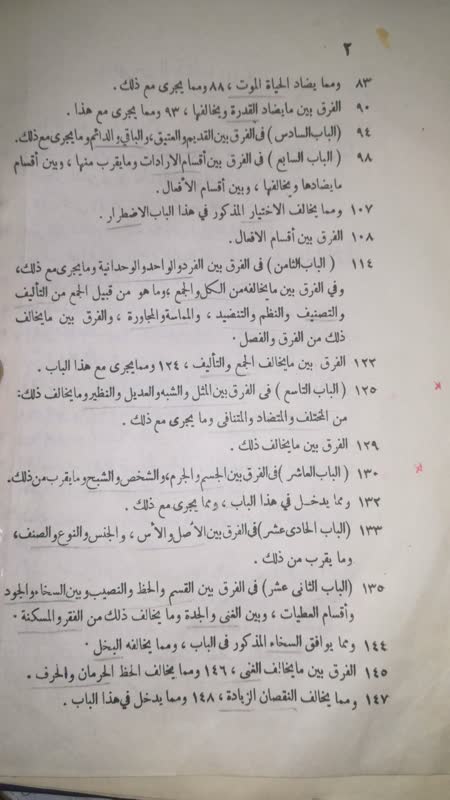 ٢
٨٣ ومما يضاد الحياة الموت ، ٨٨ ومما يجرى مع ذلك .
٩٠ الفرق بين مايضاد القدرة ويخالفها ، ٩٣ ومما يجرى مع هذا .
٩٤ (الباب السادس) فى الفرق بين القديم والعتيق، والباقى والدائم وما يجرى مع ذلك.
٩٨ ( الباب السابع ) فى الفرق بين أقسام الارادات وما يقرب منها ، وبين أقسام
ما يضادها ويخالفها ، وبين أقسام الأفعال .
١٠٧ ومما يخالف الاختيار المذكور في هذا الباب الاضطرار .
١٠٨ الفرق بين أقسام الافعال .
١١٤ ( الباب الثامن ) فى الفرق بين الفرد والواحد والوحدانية وما يجرى مع ذلك،
وفي الفرق بين ما يخالفه من الكل والجمع ، وما هو من قبيل الجمع من التأليف
والتصنيف والنظم والتنضيد ، والماسة والمجاورة ، والفرق بين ما يخالف
ذلك من الفرق والفصل .
١٢٣ الفرق بين مايخالف الجمع والتأليف ، ١٢٤ ومما يجرى مع هذا الباب .
١٢٥ ( الباب التاسع ) فى الفرق بين المثل والشبه والعديل والنظير وما يخالف ذلك:
من المختلف والمتضاد والمتنافى وما يجرى مع ذلك .
١٢٩ الفرق بين ما يخالف ذلك .
١٣٠ ( الباب العاشر ) فى الفرق بين الجسم والجرم، والشخص والشبح وما يقرب من ذلك.
١٣٢ ومما يدخل في هذا الباب ، ومما يجرى مع ذلك .
١٣٣ (الباب الحادى عشر) فى الفرق بين الأصل والأس ، والجنس والنوع والصنف،
وما يقرب من ذلك .
١٣٥ (الباب الثانى عشر) فى الفرق بين القسم والحظ والنصيب وبين السخاء والجود
وأقسام العطيات ، وبين الغنى والجدة وما يخالف ذلك من الفقر والمسكنة .
١٤٤ ومما يوافق السخاء المذكور فى الباب ، ومما يخالفه البخل .
١٤٥ الفرق بين ما يخالف الغنى ، ١٤٦ ومما يخالف الحظ الحرمان والحرف .
١٤٧ ومما يخالف النقصان الزيادة ، ١٤٨ ومما يدخل في هذا الباب .